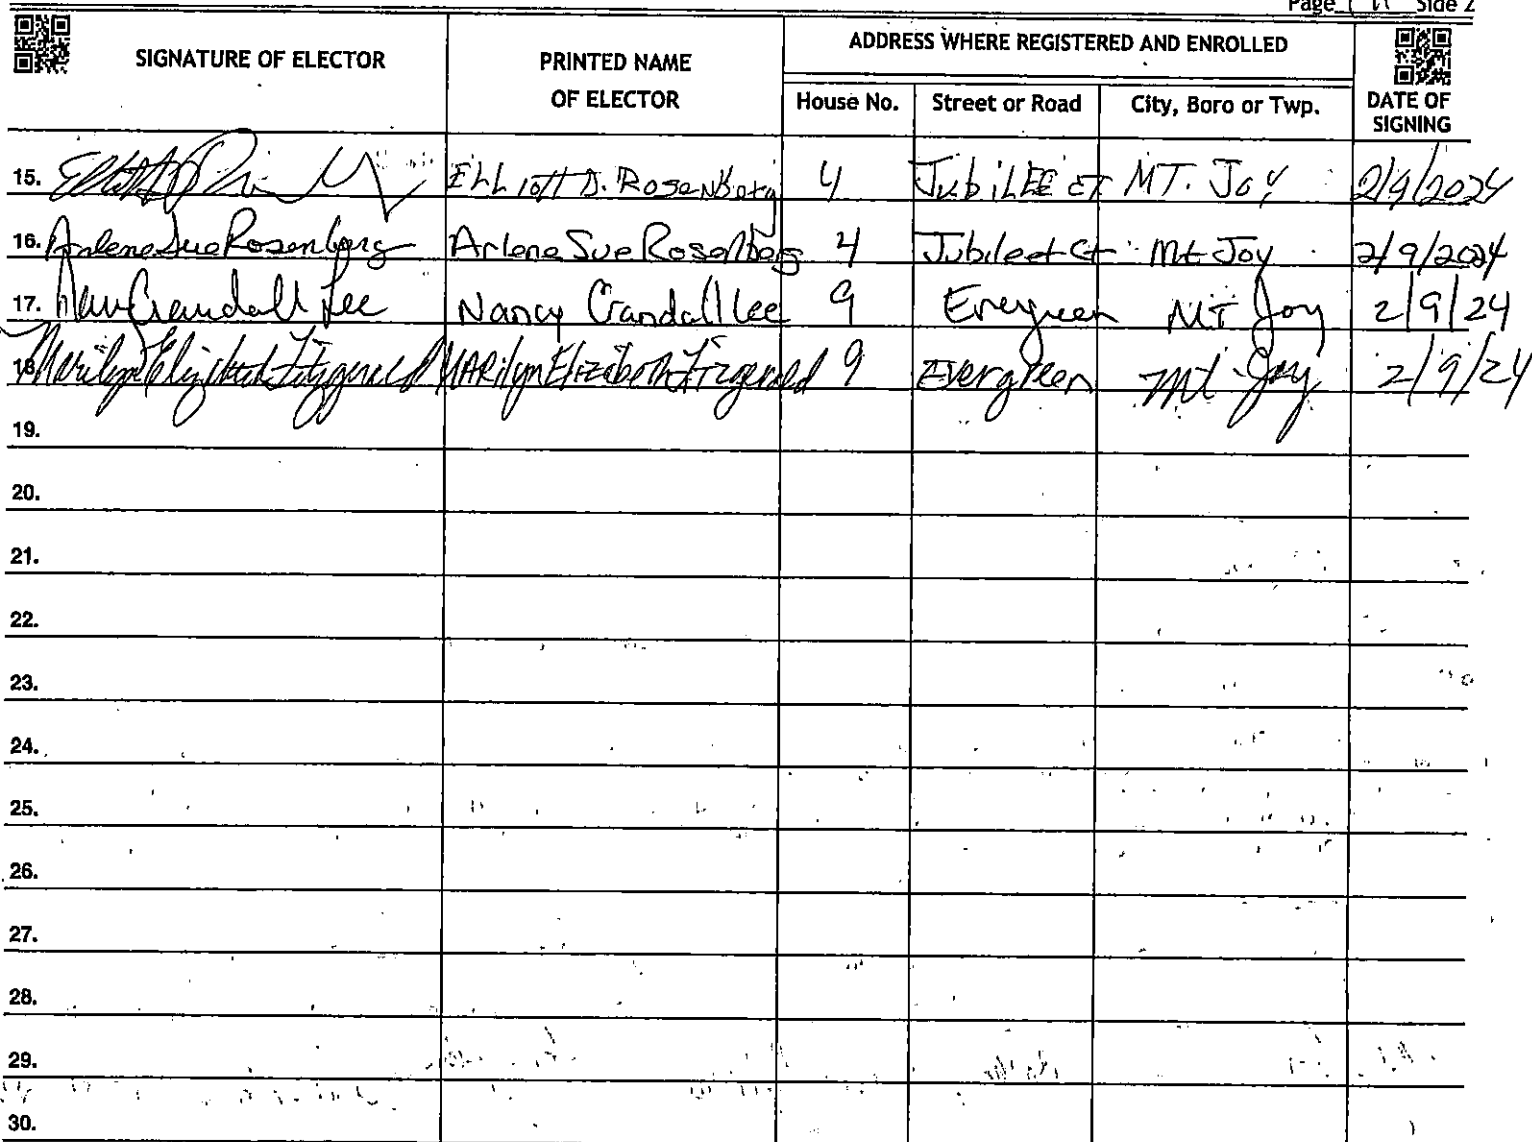 Page Side 2
SIGNATURE OF ELECTOR PRINTED NAME OF ELECTOR ADDRESS WHERE REGISTERED AND ENROLLED
House No. Street or Road City, Boro or Twp. DATE OF SIGNING
15. Elliott D. Rosenberg 4 Jubilee CT MT. Joy 2/9/2024
16. Arlene Sue Rosenberg Arlene Sue Rosenberg 4 Jubilee Ct Mt Joy 2/9/2024
17. Nancy Crandall Lee Nancy Crandall Lee 9 Evergreen Mt Joy 2/9/24
18. Marilyn Elizabeth Fitzgerald MARilyn Elizabeth Fitzgerald 9 Evergreen Mt Joy 2/9/24
19.
20.
21.
22.
23.
24.
25.
26.
27.
28.
29.
30.